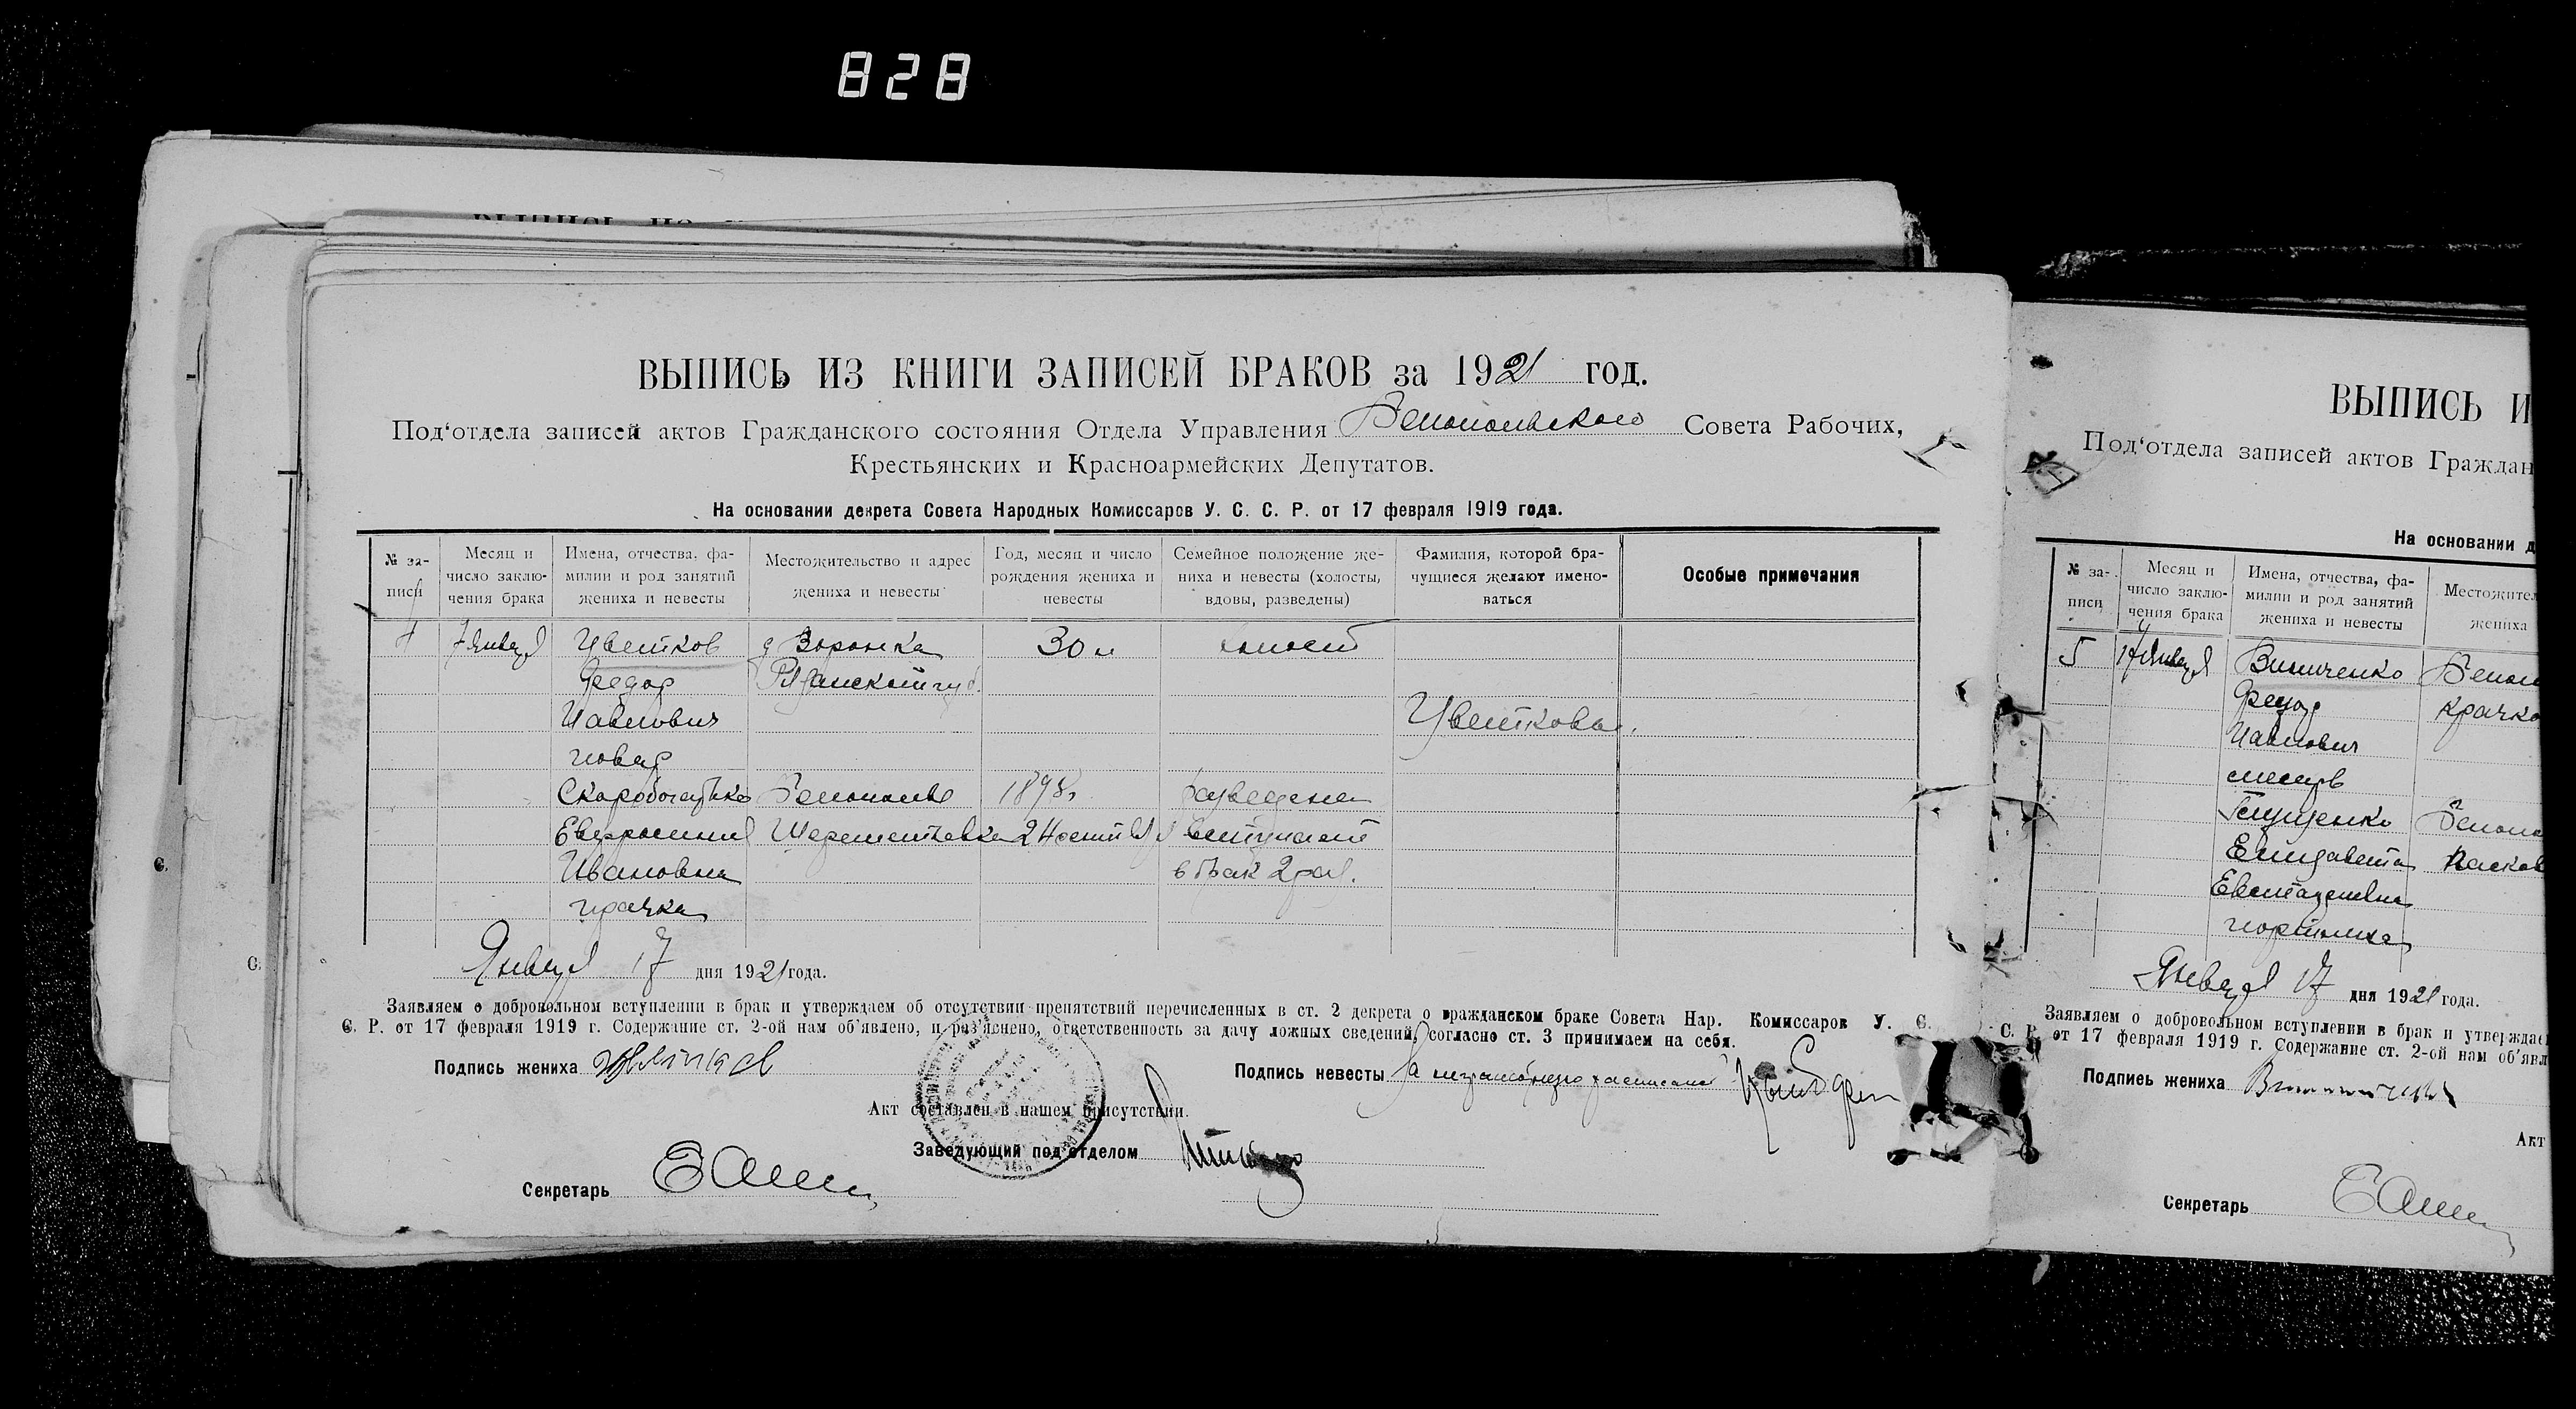 828
ВЫПИСЬ ИЗ КНИГИ ЗАПИСЕЙ БРАКОВ за 1921 год.
Под‘отдела записей актов Гражданского состояния Отдела Управления Белопольского Совета Рабочих,
Крестьянских и Красноармейских Депутатов.
На основании декрета Совета Народных Комиссаров У. С. С. Р. от 17 февраля 1919 года.
№ за-писи
Месяц и число заклю-чения брака
Имена, отчества, фа-милии и род занятий жениха и невесты
Местожительство и адрес жениха и невесты
Год, месяц и число рождения жениха и невесты
Семейное положение же-ниха и невесты (холосты, вдовы, разведены)
Фамилия, которой бра-чущиеся желают имено-ваться
Особые примечания
4 Января Цветков д Воронка 30 л холост
Федор Рязанской губ.
Павлович Цветковы.
повар
Белополье 1898 г. разведена
Евфросиния вступает
Ивановна в брак 2 раз.
прачка
Января 17 дня 1921 года.
Заявляем о добровольном вступлении в брак и утверждаем об отсутствии препятствий перечисленных в ст. 2 декрета о гражданском браке Совета Нар. Комиссаров У. С.
С. Р. от 17 февраля 1919 г. Содержание ст. 2-ой нам об’явлено, и раз’яснено, ответственность за дачу ложных сведений, согласно ст. 3 принимаем на себя.
Подпись жениха Цветков
Подпись невесты За неграмотную расписался
Акт составлен в нашем присутствии.
Заведующий под’отделом
Секретарь
ВЫПИСЬ И
Под‘отдела записей актов Граждан
На основании д
№ за-писи
Месяц и число заклю-чения брака
Имена, отчества, фа-милии и род занятий жениха и невесты
Местожител
жениха
5 17 Января Винниченко Белопо
Федор
Павлович
слесарь
Елизавета
Евстафиевна
портниха
Января 17 дня 1921 года.
Заявляем о добровольном вступлении в брак и утверждае
С. Р. от 17 февраля 1919 г. Содержание ст. 2-ой нам об’явл
Подпись жениха
Акт
Секретарь